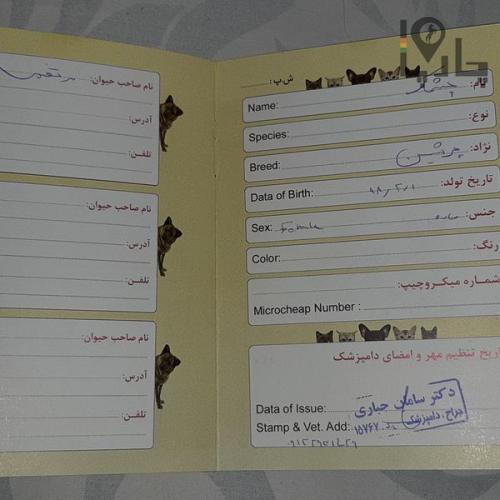 چارپا
نام صاحب حیوان:
آدرس:
تلفن:
نام صاحب حیوان:
آدرس:
تلفـن:
نام صاحب حیوان:
آدرس:
تلفن:
ش.پ:
نام:
Name:
نوع:
Species:
نژاد: پرشین
Breed:
تاریخ تولد:
Data of Birth:
جنس: ماده
Sex: Female
رنگ:
Color:
شماره میکروچیپ:
Microcheap Number :
تاریخ تنظیم مهر و امضای دامپزشک
Data of Issue:
دکتر سامان جباری
Stamp & Vet. Add:
جراح، دامپزشک
۱۵۷۶۷